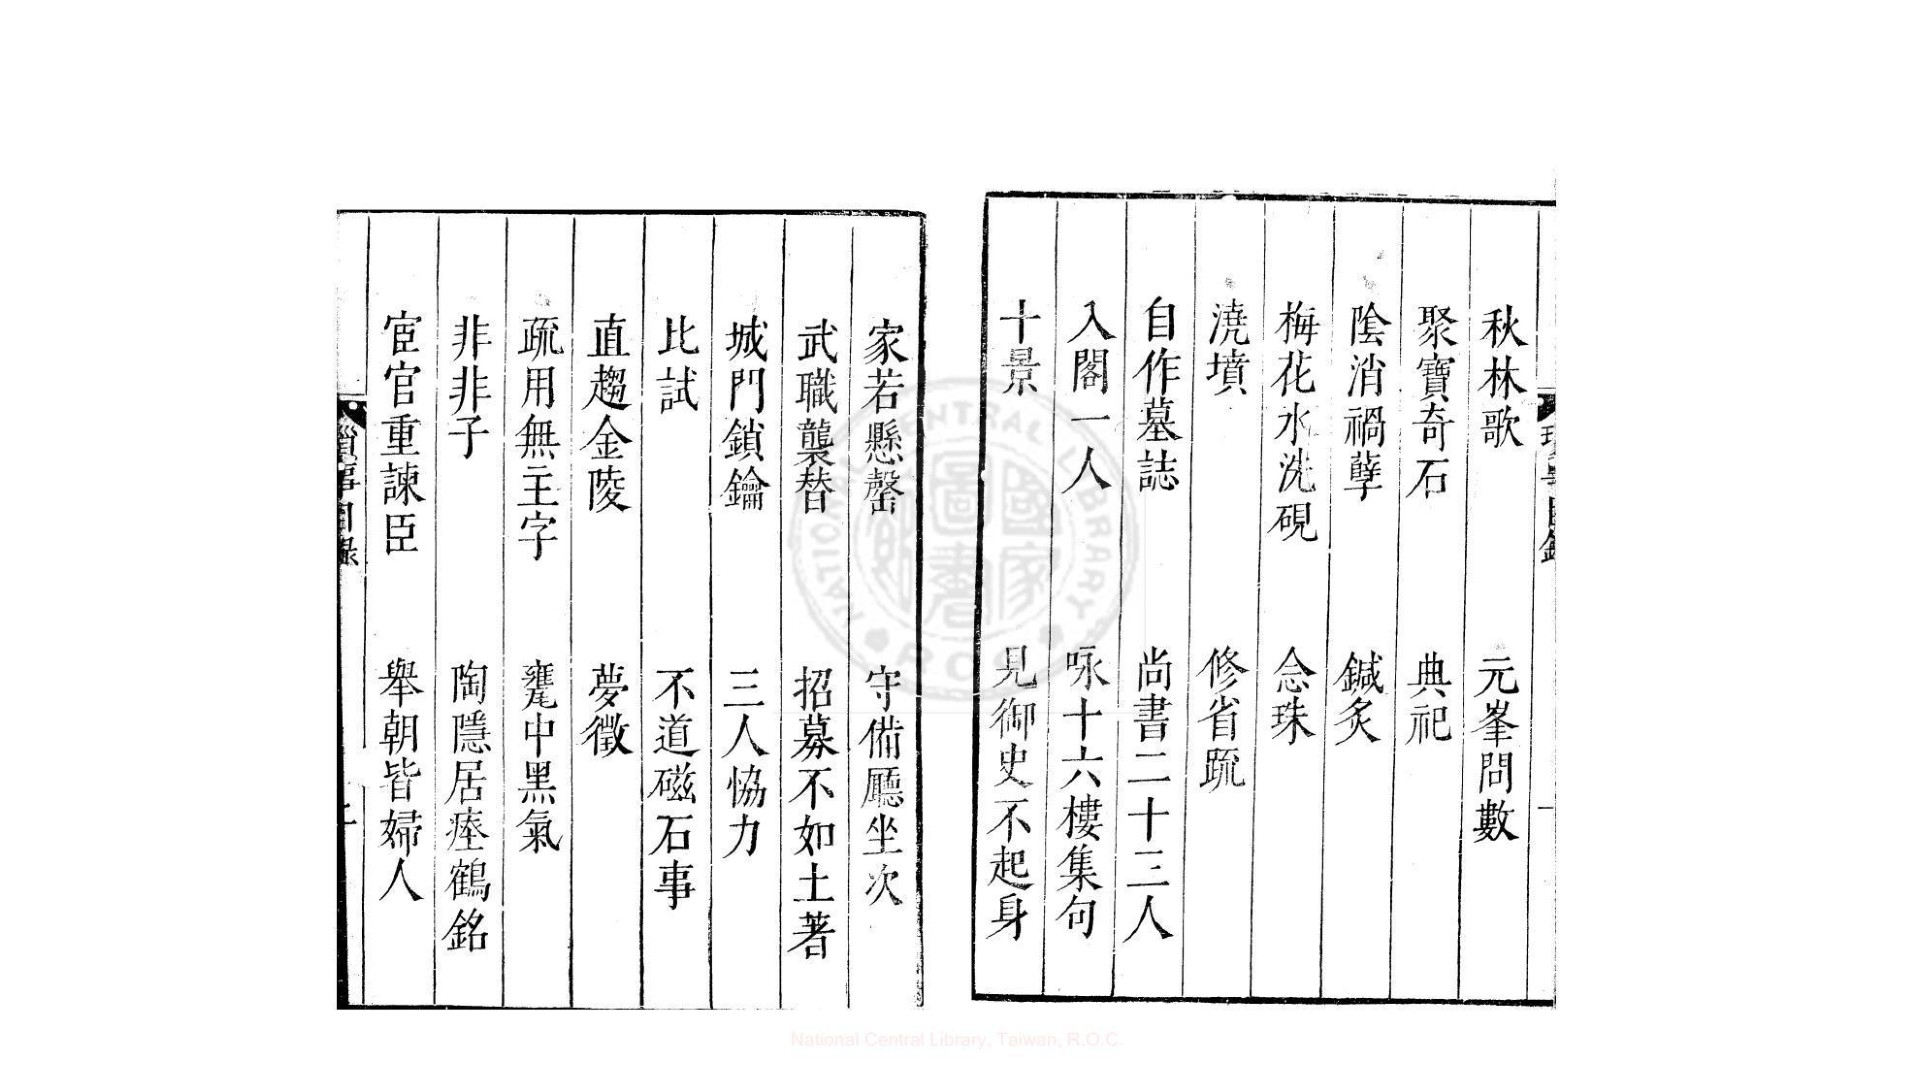 秋林歌　元峯問數
聚寶奇石　典祀
陰消禍孽　鍼炙
梅花水洗硯　念珠
澆墳　修省疏
自作墓誌　尚書二十三人
入閣一人　咏十六樓集句
十景　見御史不起身
家若懸罄　守備廳坐次
武職襲替　招募不如土著
城門鎖鑰　三人恊力
比試　不道磁石事
直趨金陵　夢徵
疏用無主字　甕中黑氣
非非子　陶隱居瘞鶴銘
宦官重諫臣　舉朝皆婦人
瑣事目錄
NATIONAL CENTRAL LIBRARY ROC
國家圖書館
National Central Library, Taiwan, R.O.C.